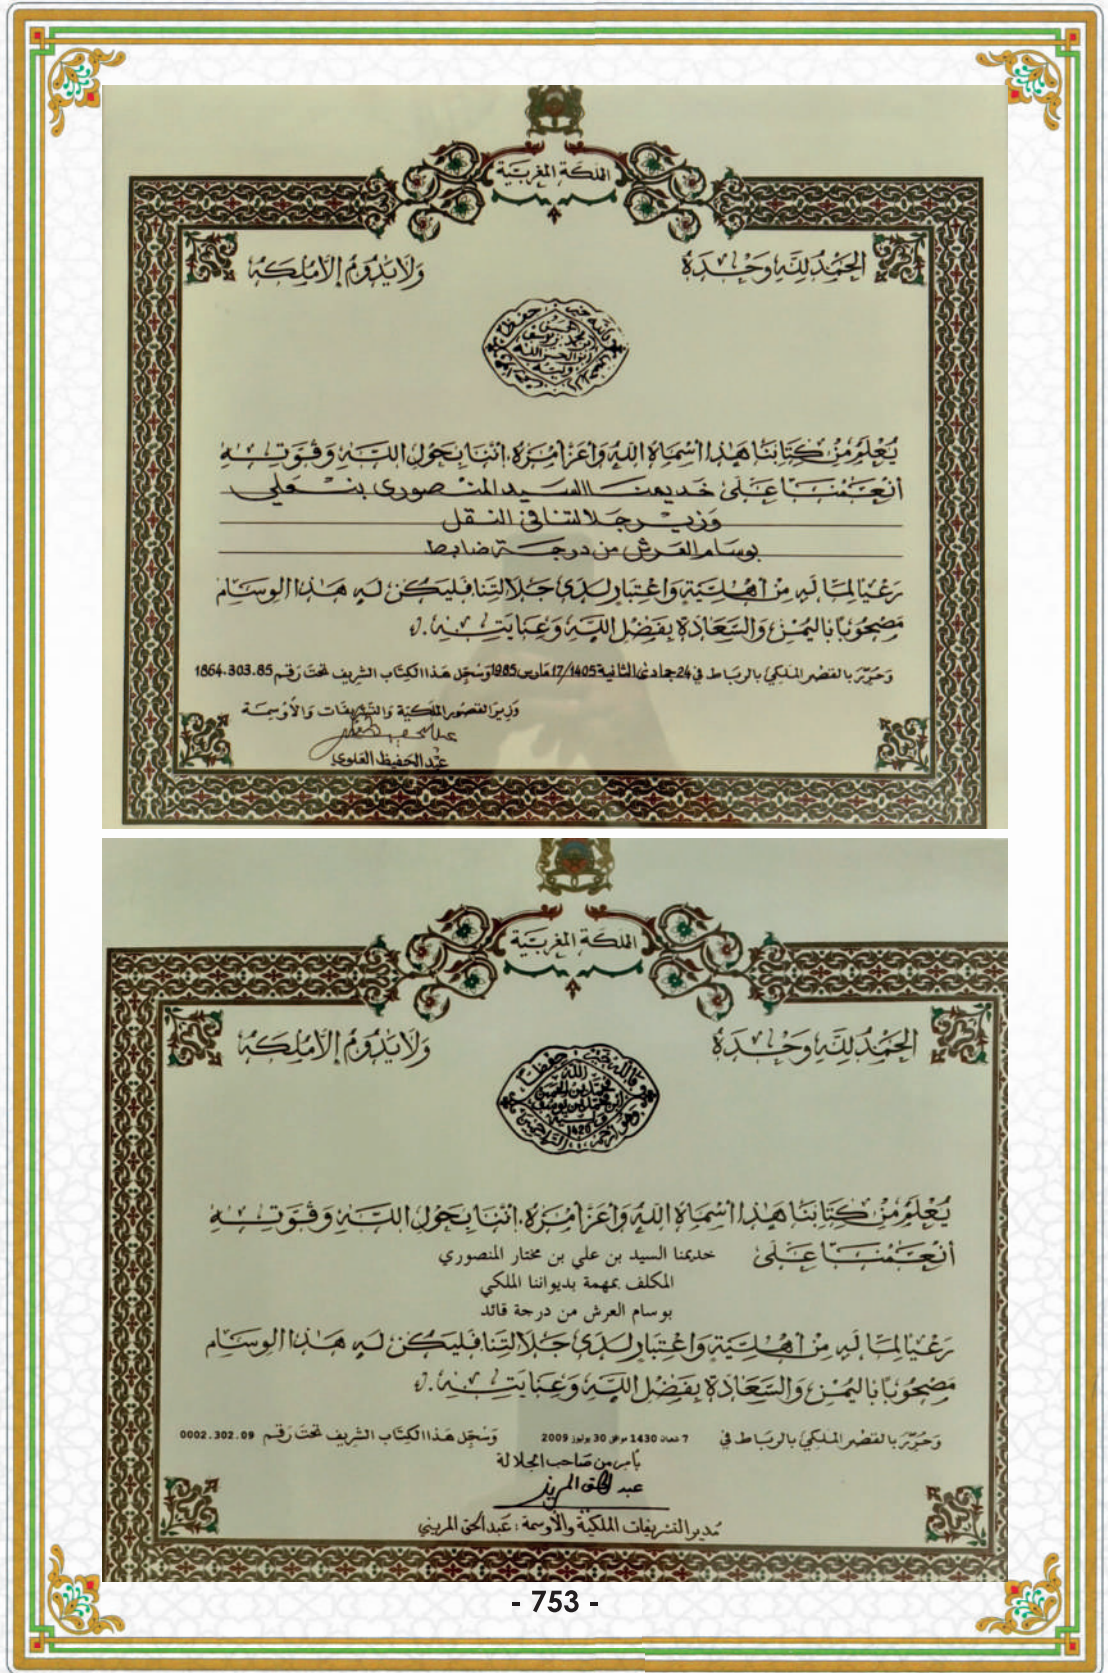 المملكة المغربية
الحمد لله وحده
ولا يدوم إلا ملكه
يعلم من كتابنا هذا أسماه الله وأعز أمره، أننا بحول الله وقوته
أنعمنا على خديمنا السيد المنصوري بنعلي
وزير جلالتنا في النقل
بوسام العرش من درجة ضابط
رعيا لما له من أهلية واعتبار لدى جلالتنا فليكن له هذا الوسام
مصحوبا باليمن والسعادة بفضل الله وعنايته
وحرر بالقصر الملكي بالرباط في 24 جمادى الثانية 1405/17 مارس 1985 وسجل هذا الكتاب الشريف تحت رقم 1864.303.85
وزير القصور الملكية والتشريفات والأوسمة
عبد الحفيظ العلوي
المملكة المغربية
الحمد لله وحده
ولا يدوم إلا ملكه
الله
محمد بن الحسن
ابن محمد بن يوسف
وليه
1420
يعلم من كتابنا هذا أسماه الله وأعز أمره، أننا بحول الله وقوته
أنعمنا على خديمنا السيد بن علي بن مختار المنصوري
المكلف بمهمة بديواننا الملكي
بوسام العرش من درجة قائد
رعيا لما له من أهلية واعتبار لدى جلالتنا فليكن له هذا الوسام
مصحوبا باليمن والسعادة بفضل الله وعنايته
وحرر بالقصر الملكي بالرباط في 7 شعبان 1430 موافق 30 يوليوز 2009 وسجل هذا الكتاب الشريف تحت رقم 0002.302.09
بأمر من صاحب الجلالة
عبد الحق المريني
مدير التشريفات الملكية والأوسمة : عبد الحق المريني
- 753 -